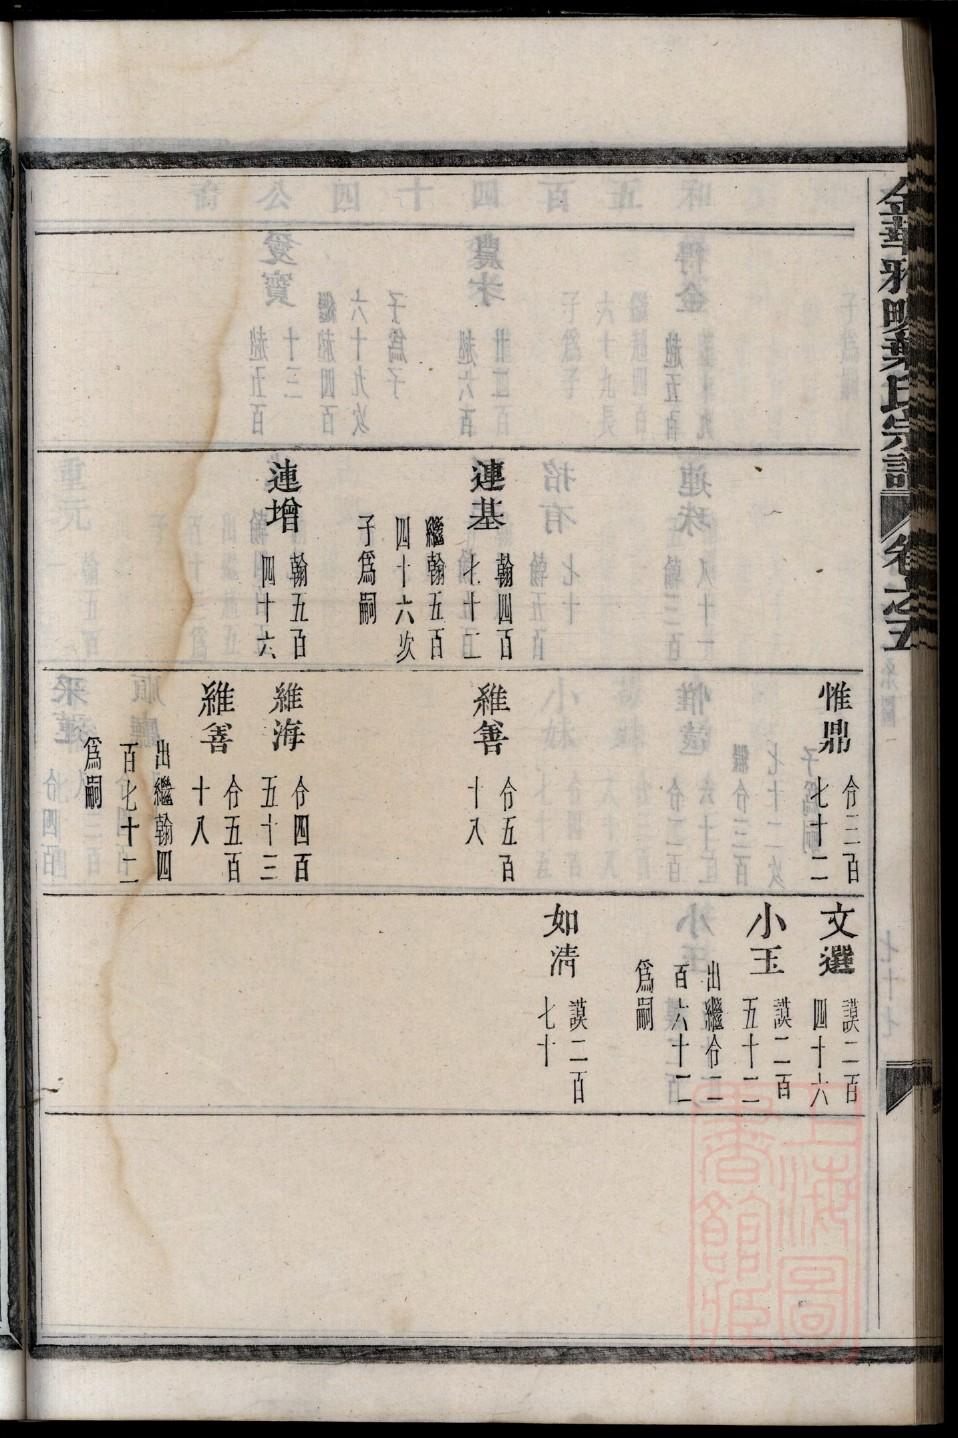 金華雅畈葉氏宗譜
卷之五
連基
翰四百
七十二
繼翰五百
四十六次
子爲嗣
連增
翰五百
四十六
惟鼎
佾三百
七十二
維善
佾五百
十八
維海
佾四百
五十三
維善
佾五百
十八
出繼翰四
百七十二
爲嗣
文選
謨二百
四十六
小玉
謨二百
五十二
出繼佾二
百六十二
爲嗣
如淸
謨二百
七十
上海圖
書館藏